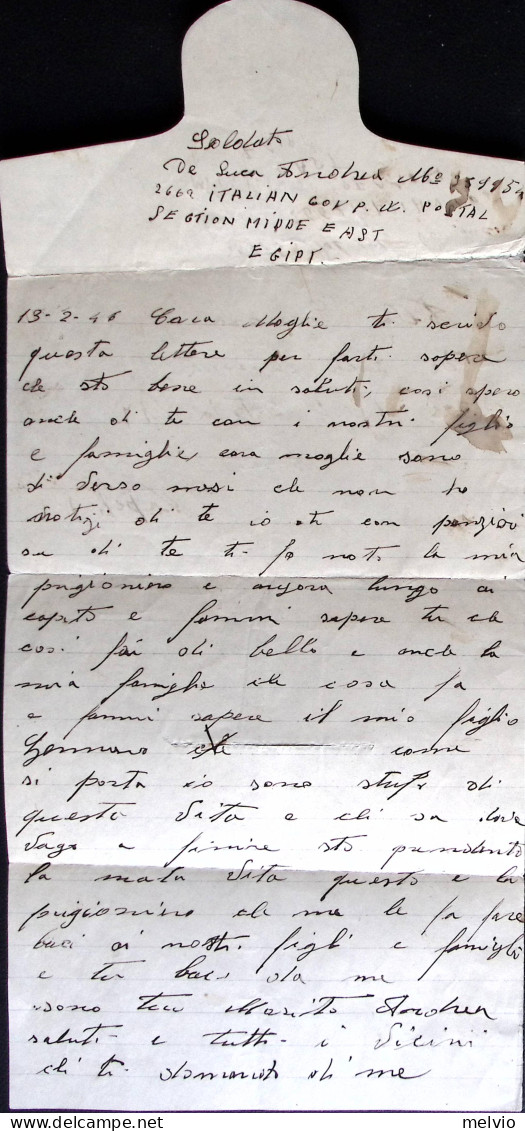 Soldato
De Luca Andrea Mo
2662 ITALIAN GOV P. W. POSTAL
SECTION MIDDE EAST
EGIPT.
13-2-46 Cara Moglie ti scrivo
questa lettere per farti sapere
che sto bene in saluti, cosi spero
anche di te con i nostri figlio
e famiglie cara moglie sono
di verso mesi che non ho
notizi di te io ti con
di te ti fo noto la mia
prigioniero e ancora lungo ai
capito e fammi sapere tu che
cosi fai di bello e anche la
mia famiglie che cosa fa
e fammi sapere il mio figlio
Gennaro come
si porta io sono stufo di
questa vita e chi sa dove
vago a finire sto prendento
la mala vita questo e la
prigioniero che me la fa fare
baci ai nostri figli e famiglie
e tu baci da me
sono tuo Marito Andrea
saluti e tutti i vicini
chi ti domanda di me
melvio